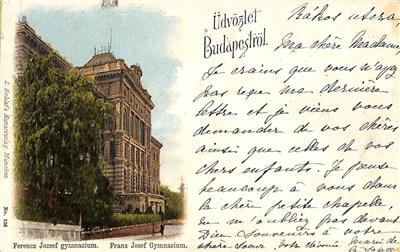 Üdvözlet
Budapestről
Rákos utcza,
Ma chère Madame,
Je crains que vous n'ayez
pas reçu ma dernière
lettre et je viens vous
demander de vos chères
ainsi que celles de vos
chers enfants. Je pense
beaucoup à vous dans
la chère petite chapelle
m'oubliez pas devant
Dieu. Souvenirs à votre
chère soeur. Votre
Marie de
Ferencz Jozsef gymnazium. Franz Josef Gymnasium.
No. 126